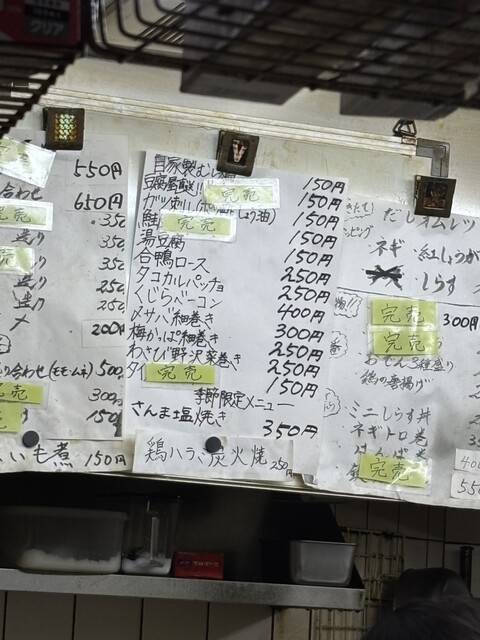 クリア
550円
合わせ 650円
完売 350
造り 350
完売 350
造り 250
造り 250
200円
り合わせ(モモ・ムネ) 500
完売 300
完売 150
いも煮 150円
自家製むし鶏 150円
豆腐屋 完売 150円
ガツ刺し 150円
鮭 完売 150円
湯豆腐 250円
合鴨ロース 250円
タコカルパッチョ 400円
くじらベーコン 300円
〆サバ細巻き 250円
梅かっぱ細巻き 250円
わさび野沢菜巻き 150円
タイ 完売
季節限定メニュー
さんま塩焼き 350円
鶏ハラミ炭火焼 250円
だしオムレツ
ッピング
ネギ 紅しょうが
しらす
完売 300円
完売
おでん3種盛り
鶏の唐揚げ
ミニしらす丼
ネギトロ巻
完売
400
550